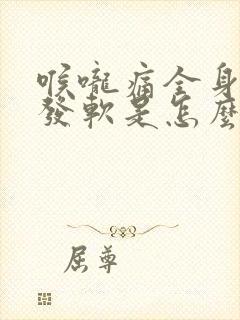 喉嚨痛全身
發軟是怎麼
屈尊